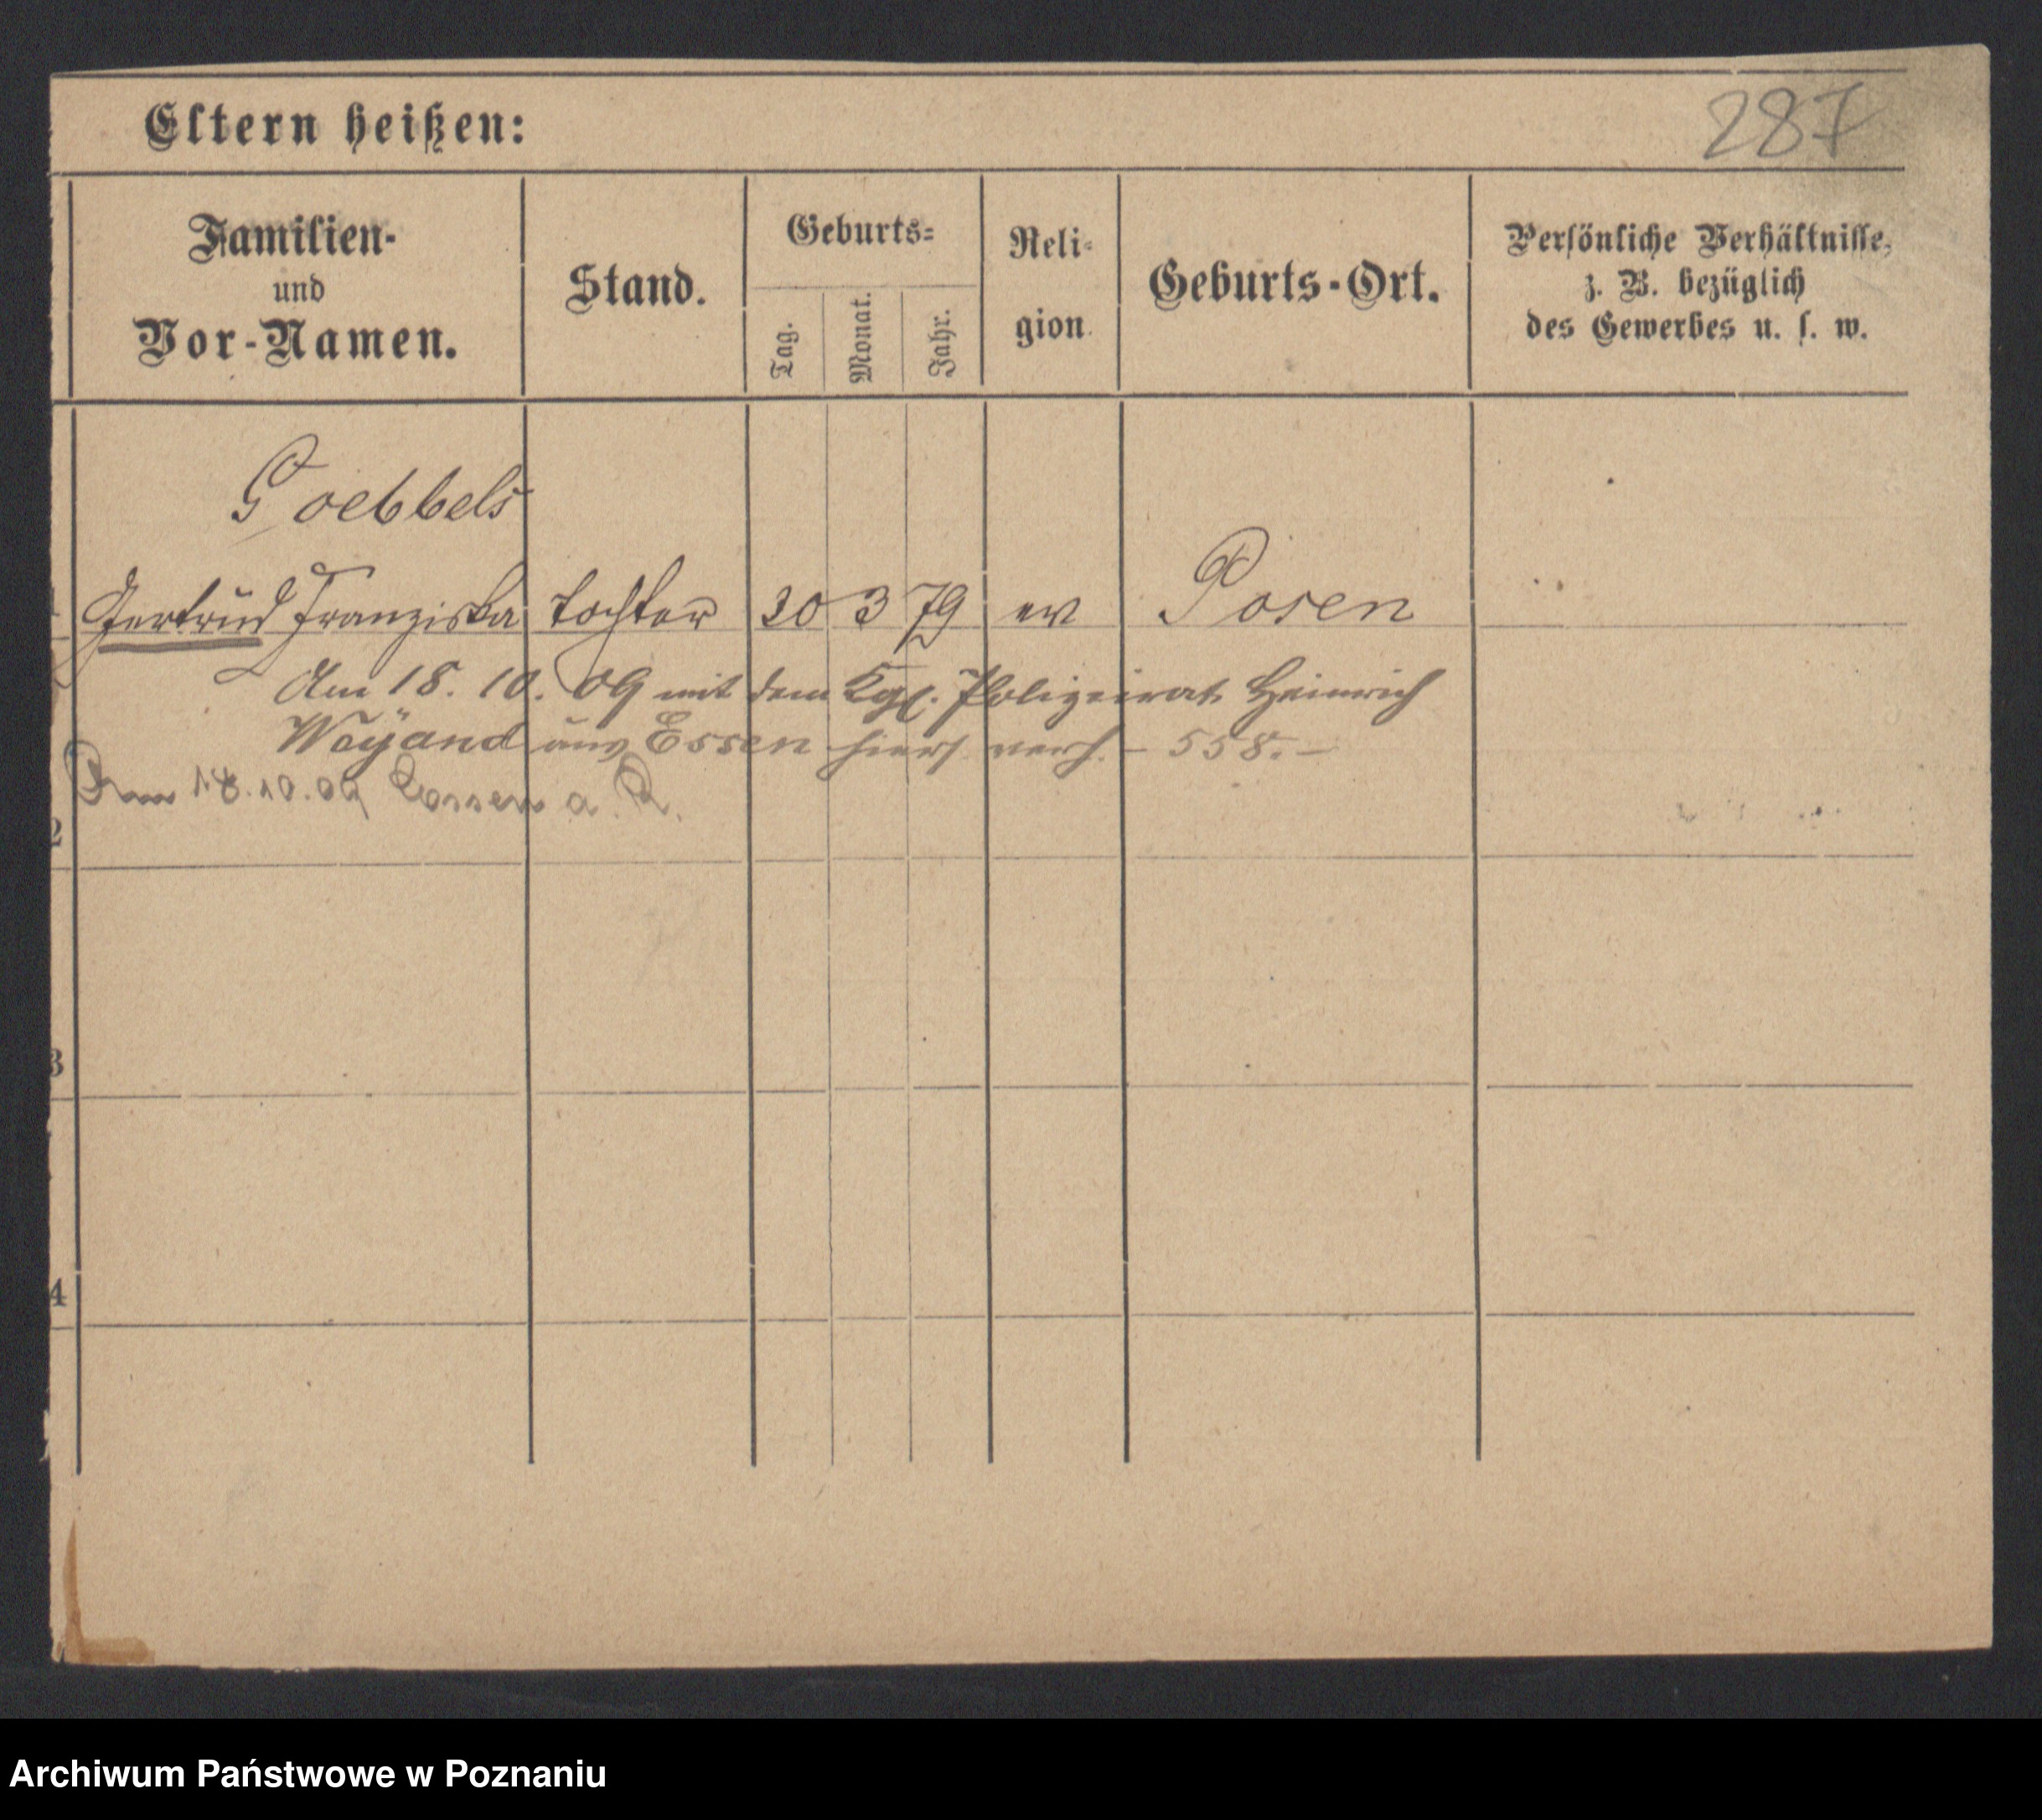 Eltern heißen:
287
Familien-
und
Vor-Namen.
Stand.
Geburts-
Tag.
Monat.
Jahr.
Reli-
gion
Geburts-Ort.
Persönliche Verhältnisse,
z. B. bezüglich
des Gewerbes u. s. w.
Goebbels
1 Gertrud Franziska Tochter 30 3 79 ev Posen
Am 18. 10. 09 mit dem Kgl. Polizeirat Heinrich
Weyand aus Essen hiers. verh. – 558. –
18.10.09 Essen a. R.
2
3
4
Archiwum Państwowe w Poznaniu